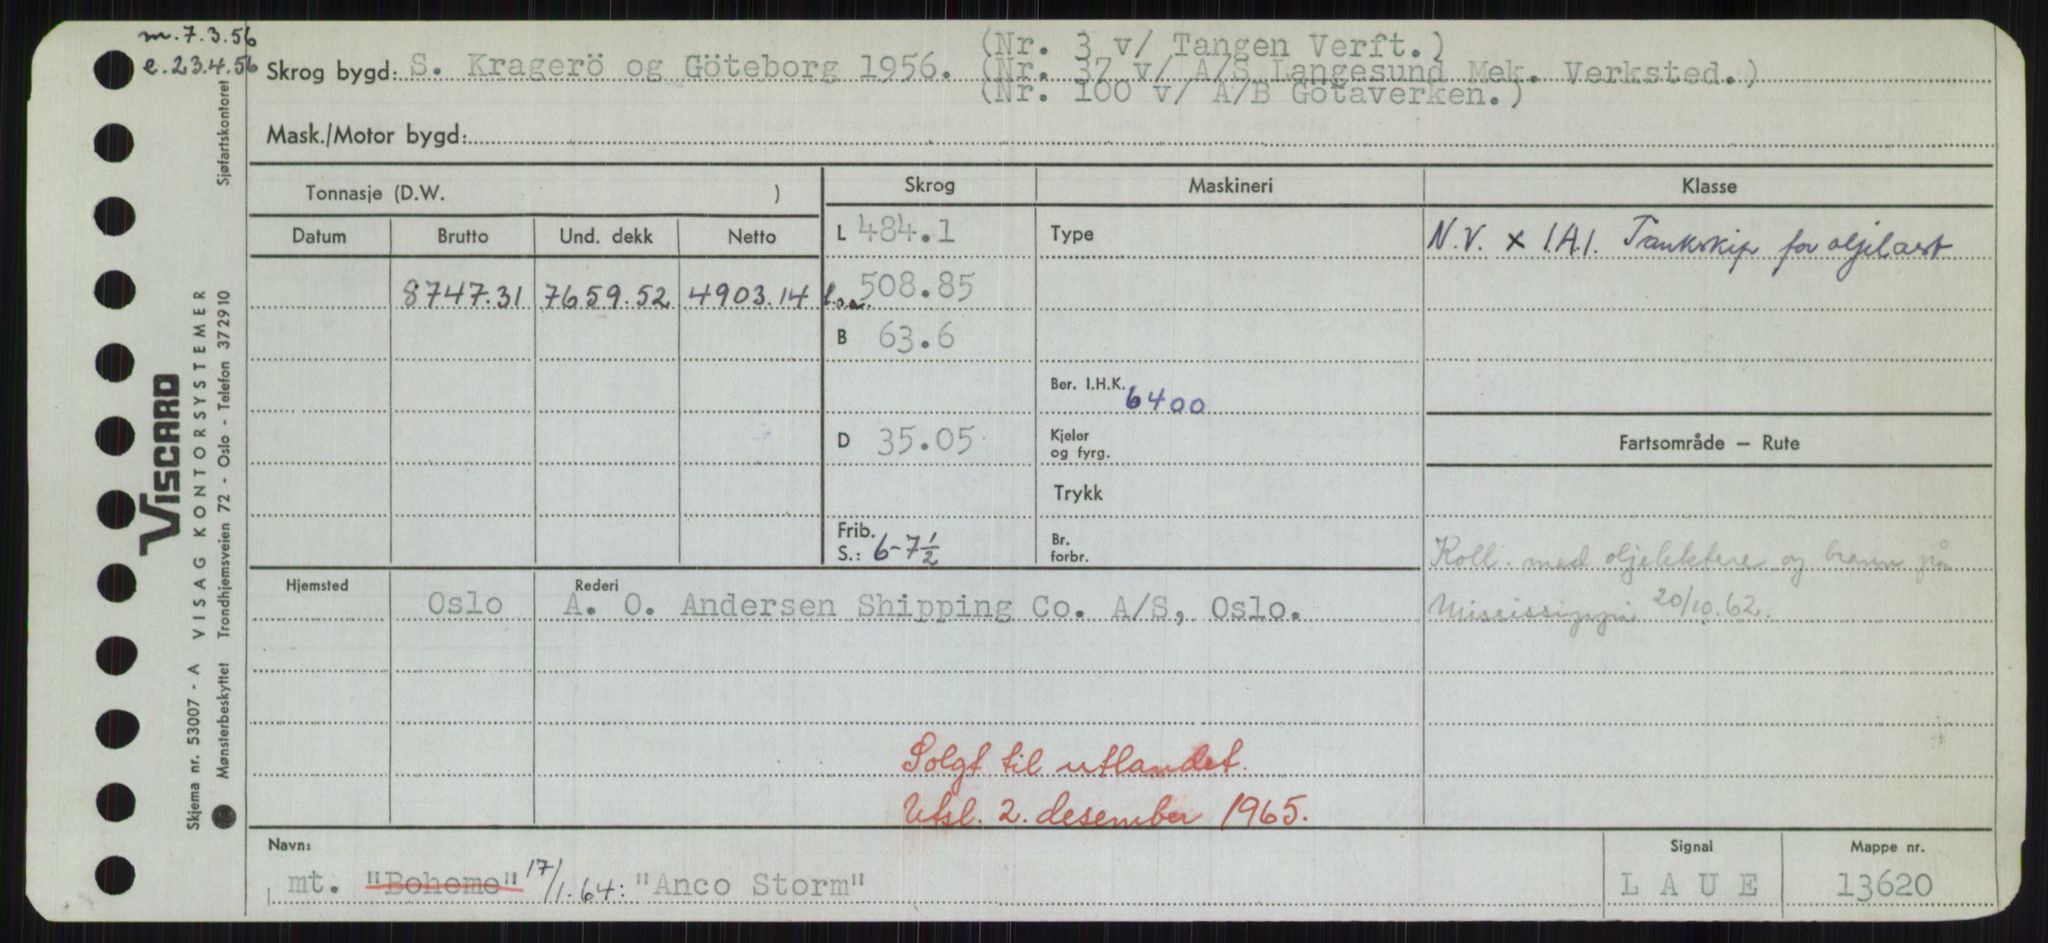 m. 7.3.56
e. 23.4.56
Skrog bygd: S. Kragerö og Göteborg 1956. (Nr. 3 v/ Tangen Verft.)
(Nr. 37 v/ A/S Langesund Mek. Verksted.)
(Nr. 100 v/ A/B Götaverken.)
Mask./Motor bygd:
Tonnasje (D.W. )
Skrog Maskineri Klasse
Datum Brutto Und. dekk Netto
L 484.1 Type N.V. x 1.A.1. Tankskip for oljelast
8747.31 7659.52 4903.14 l.o.a. 508.85
B 63.6
Ber. I.H.K. 6400
D 35.05 Kjeler og fyrg.
Fartsområde – Rute
Trykk
Frib. S.: 6-7½ Br. forbr.
Koll. med oljelektere og brann på
Mississippi 20/10.62.
Hjemsted Rederi
Oslo A. O. Andersen Shipping Co. A/S, Oslo.
Solgt til utlandet.
Utsl. 2. desember 1965.
Navn: Signal Mappe nr.
mt. "Boheme" 17/1.64: "Anco Storm" L A U E 13620
VISCARD
Skjema nr. 53007 - A VISAG KONTORSYSTEMER
Mønsterbeskyttet Trondhjemsveien 72 - Oslo - Telefon 372910 Sjøfartskontoret